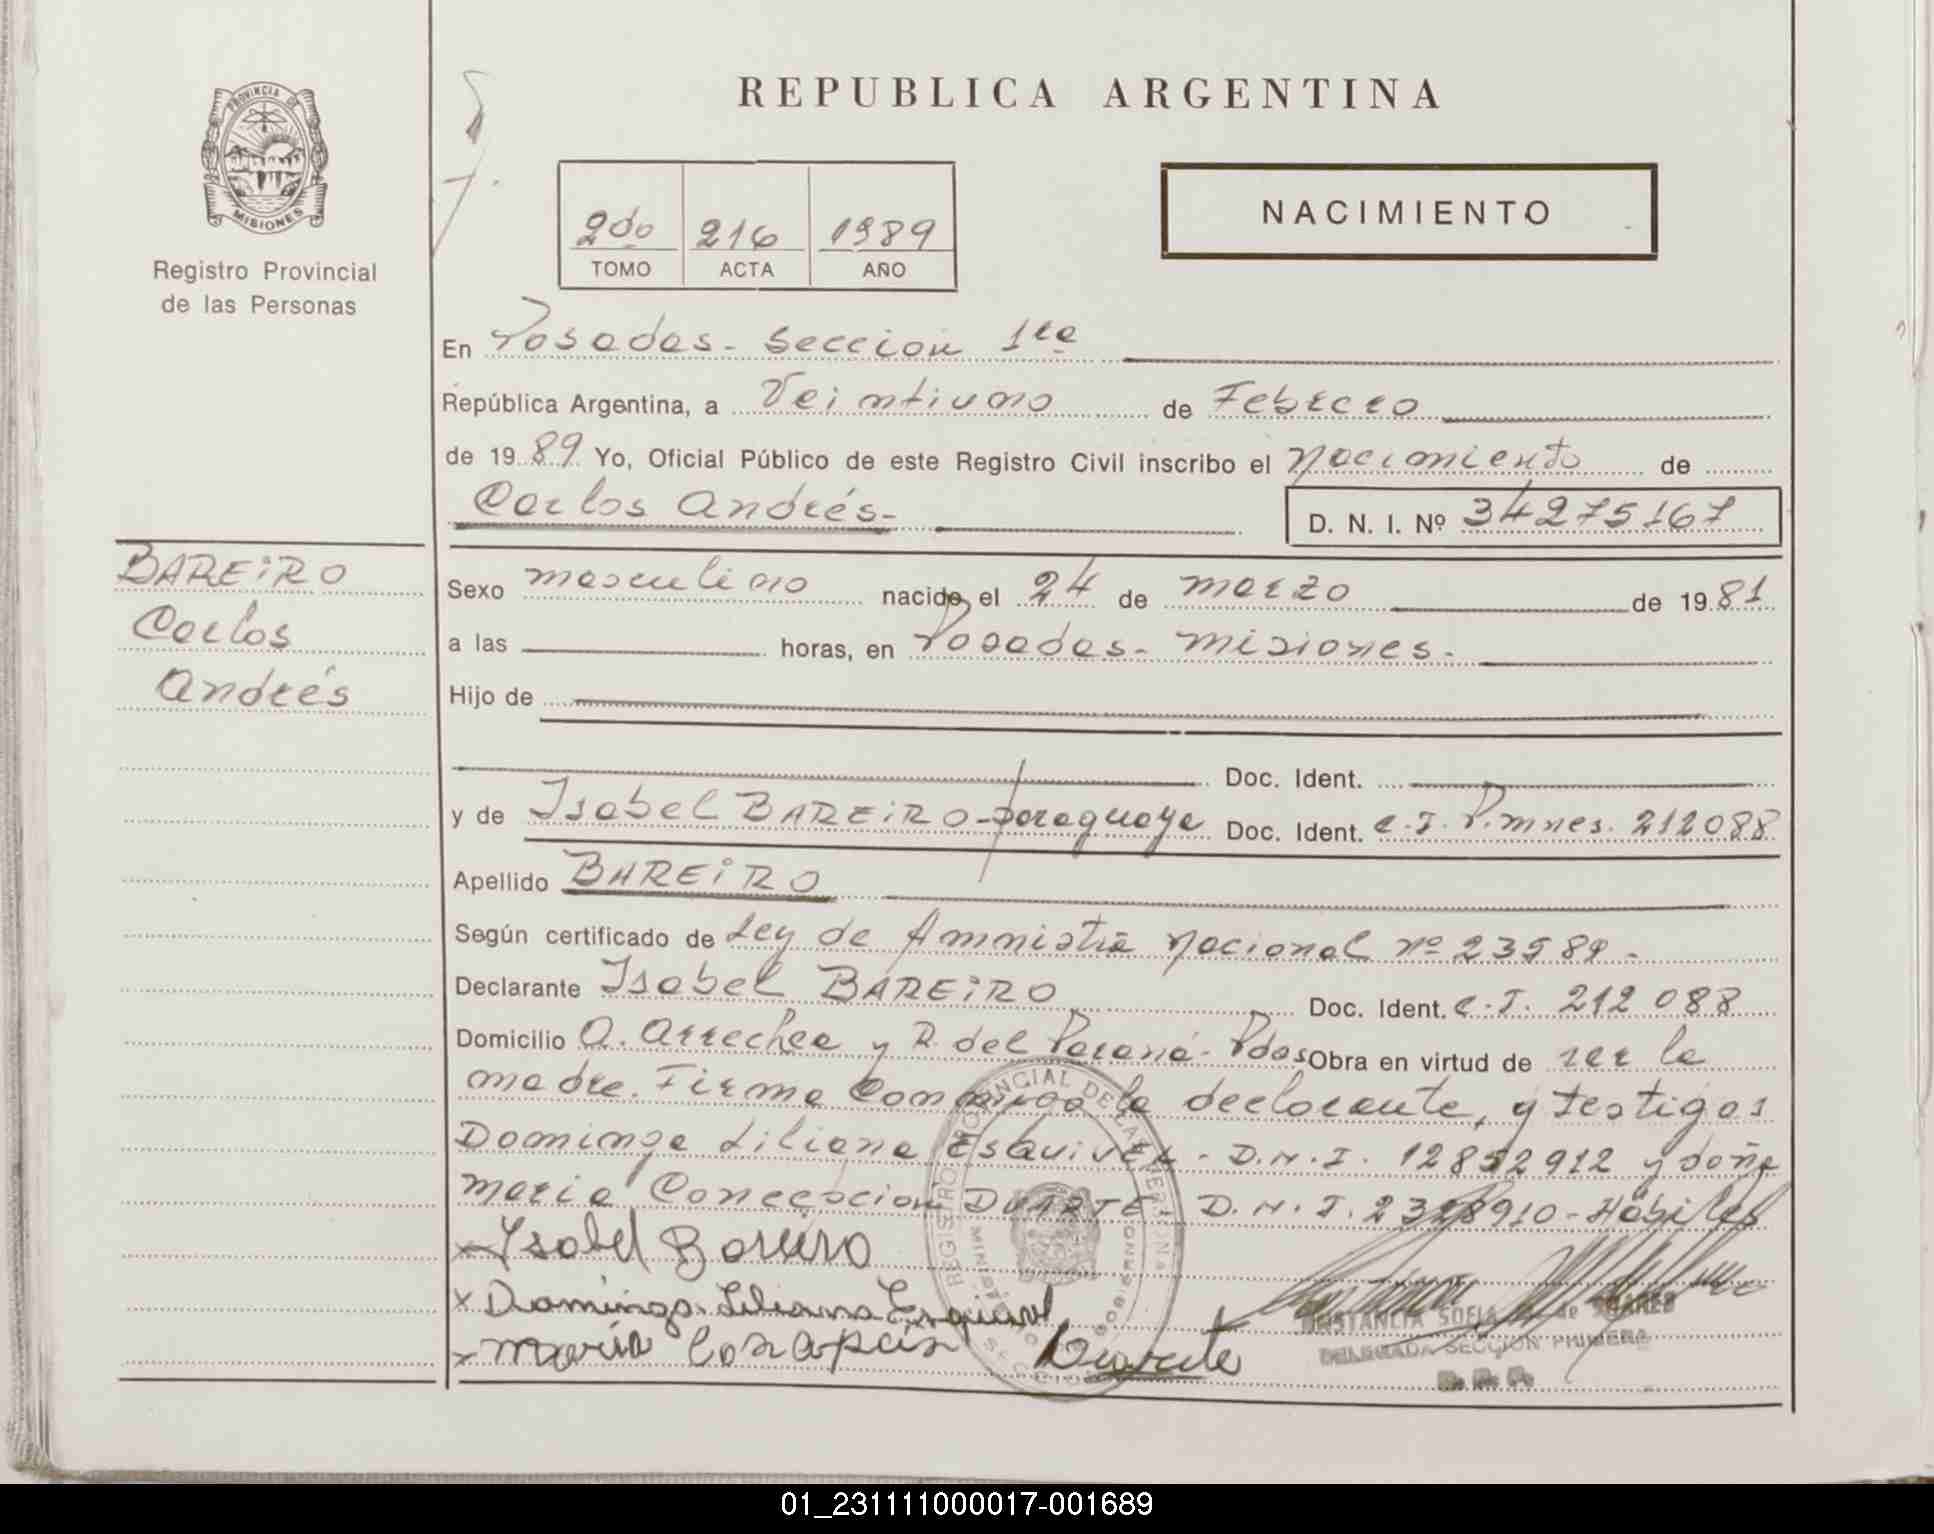 REPUBLICA ARGENTINA
PROVINCIA DE
MISIONES
Registro Provincial
de las Personas
2do 216 1989
TOMO ACTA AÑO
NACIMIENTO
En Posadas - Seccion 1ra
República Argentina, a Veintiuno de Febrero
de 1989 Yo, Oficial Público de este Registro Civil inscribo el Nacimiento de
Carlos Andrés- D. N. I. Nº 34275167
BAREiRO
Carlos
Andrés
Sexo masculino nacido el 24 de marzo de 1981
a las horas, en Posadas - Misiones.
Hijo de
Doc. Ident.
y de Isabel BAREiRO - paraguaya Doc. Ident. C.I. P. mnes. 212088
Apellido BAREiRO
Según certificado de Ley de Amnistia Nacional Nº 23589.
Declarante Isabel BAREiRO Doc. Ident. C.I. 212 088
Domicilio A. Arrechea y R. del Paraná - Pdas Obra en virtud de ser la
madre. Firma Conmigo la declarante, y testigos
Dominga Liliana EsQuiVEL - D.N.I. 12852912 y doña
Maria Concepcion DUARTE - D.N.I. 2328910 - Hábiles
x Ysabel Bareiro
x Dominga Liliana Esquivel
x Maria Duarte
SOFIA de SUARES
DELEGADA SECCION PRIMERA
01_231111000017-001689